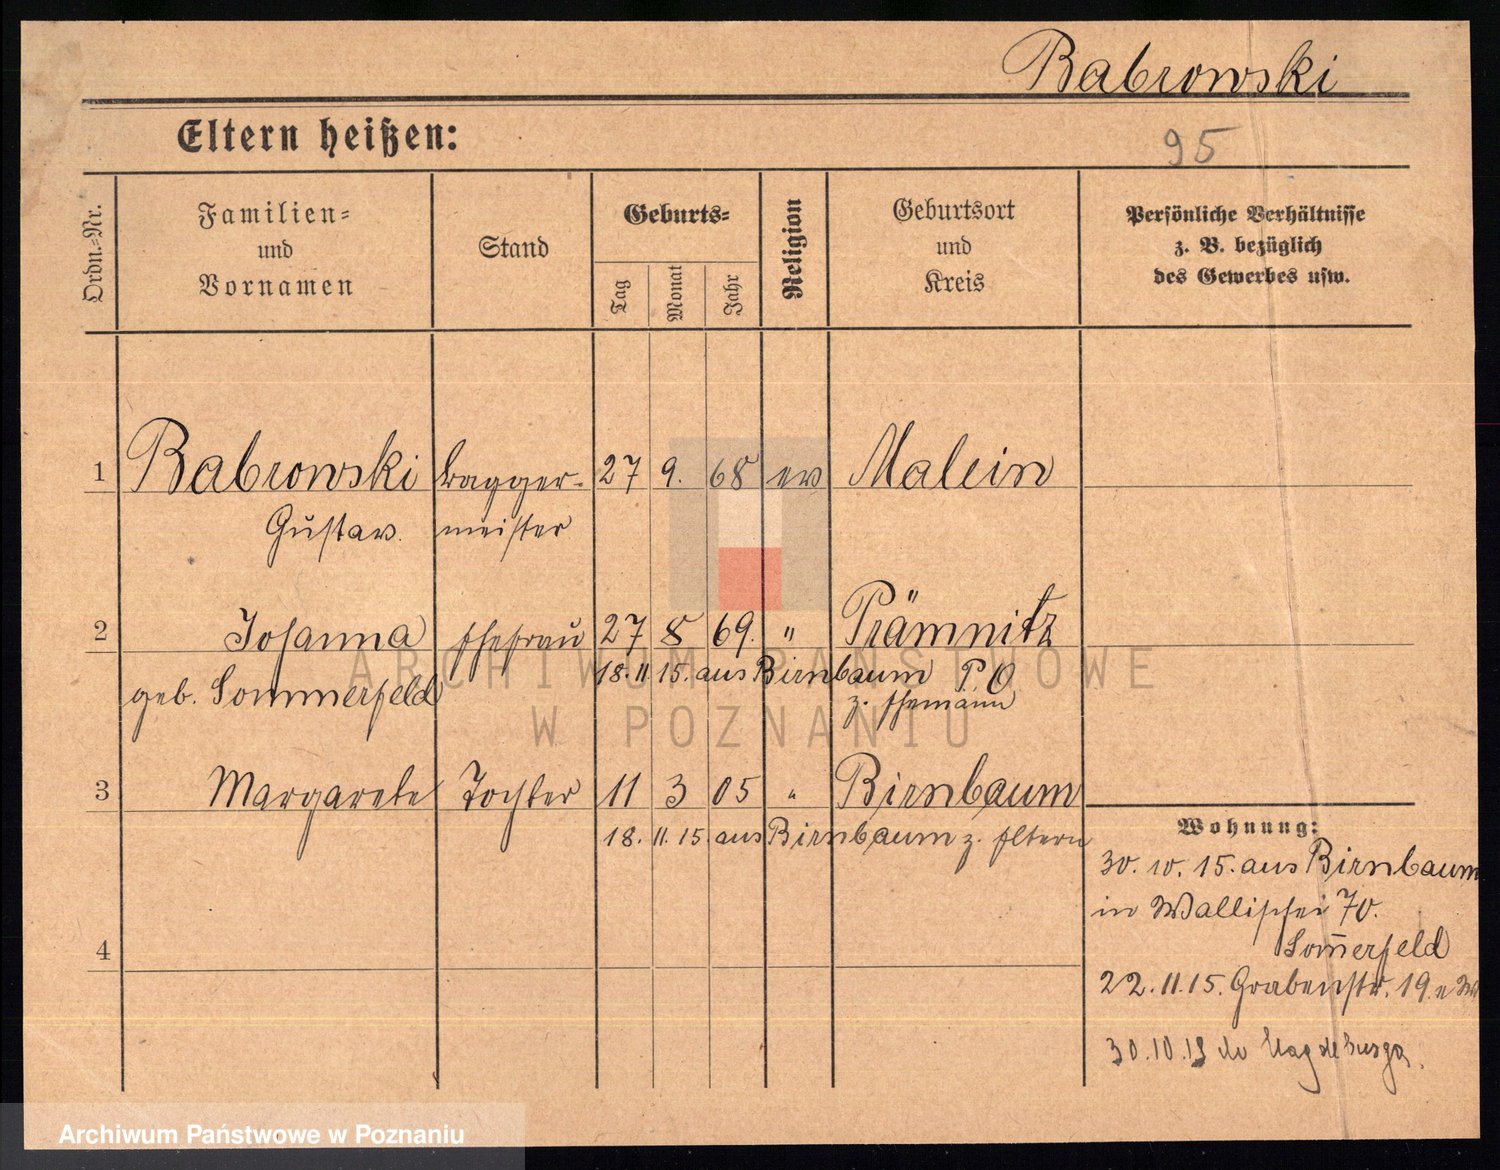 Babrowski
Eltern heißen:
95
Ordn.-Nr.
Familien-
und
Vornamen
Stand
Geburts-
Tag
Monat
Jahr
Religion
Geburtsort
und
Kreis
Persönliche Verhältnisse
z. B. bezüglich
des Gewerbes usw.
1 Babrowski Bagger- 27 9. 68 ev Malein
Gustav. meister
2 Johanna Ehefrau 27 8 69. " Prämnitz
geb. Sommerfeld 18. 11 15. aus Birnbaum P. O
z. Ehemann
3 Margarete Tochter 11 3 05 " Birnbaum
18. 11. 15. aus Birnbaum z. Eltern
Wohnung:
30. 10. 15. aus Birnbaum
in Wallischei 70.
Som̄erfeld
4
22. 11. 15. Grabenstr. 19.
30.10.19 do Magdeburga.
ARCHIWUM PAŃSTWOWE
W POZNANIU
Archiwum Państwowe w Poznaniu